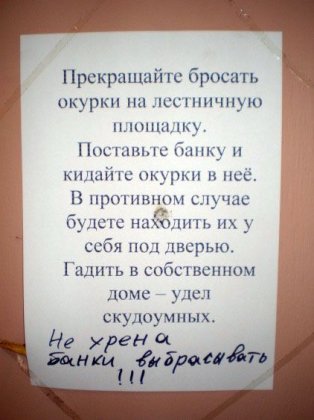 Прекращайте бросать
окурки на лестничную
площадку.
Поставьте банку и
кидайте окурки в неё.
В противном случае
будете находить их у
себя под дверью.
Гадить в собственном
доме – удел
скудоумных.
Не хрена
банки выбрасывать
!!!